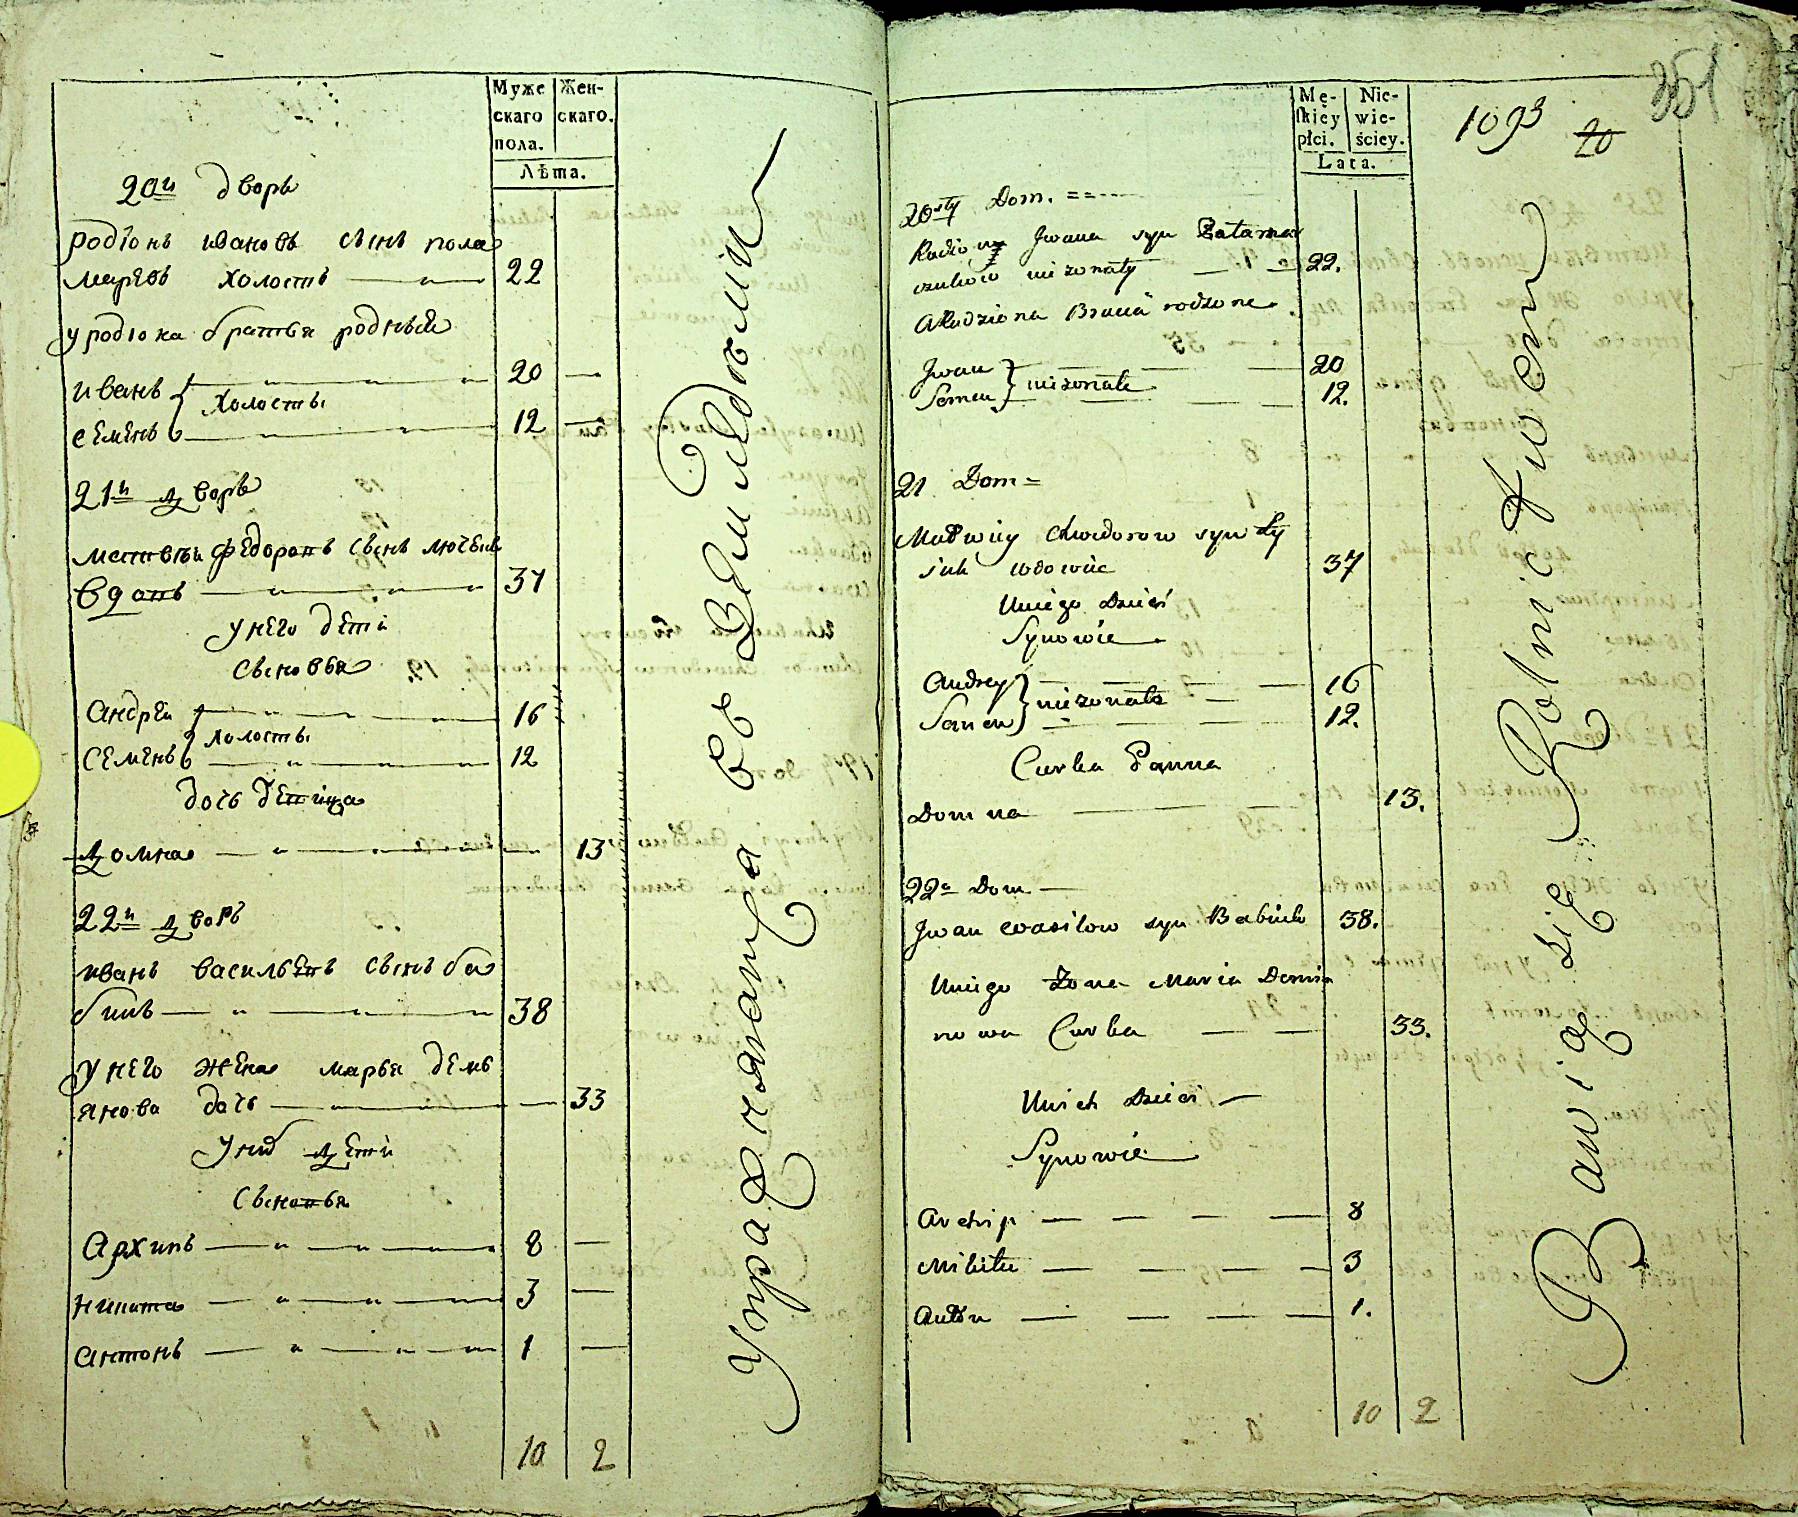 Муже
скаго
пола.
Жен-
скаго.
Лѣта.
20й дворъ
Родіонъ Ивановъ сынъ пола
маревъ холостъ 22
У Родіона братья родныя
Иванъ 20
холосты
Семенъ 12
21й дворъ
Матвѣй Федоровъ сынъ
вдовъ 37
У него дети
сыновья
Андрей 16
холосты
Семенъ 12
дочь девица
Домна 13
22й дворъ
Иванъ Васильевъ сынъ ба
бикъ 38
У него жена Марья демь
янова дочь 33
У нихъ дети
сыновья
Архипъ 8
Никита 3
Антонъ 1
10 2
Упражняются въ Земледѣлии
Mę-
skiey
płci.
Nie-
wie-
ściey.
Lata.
1093
20
351
20sty Dom.
Radion Jwana syn Patamar
czukow nieżonaty 22.
A Radziona Bracia rodzone
Jwan 20
nieżonate
Semen 12.
21 Dom
Matwiey Chwedorow syn Ły
siuk wdowiec 37
Uniego Dzieci
Synowie
Andrey 16
nieżonate
Semen 12.
Curka Panna
Domna 13.
22 Dom
Jwan Wasilow syn Babiuk 38.
Uniego Żona Maria Demia
nowa Curka 33.
Unich Dzieci
Synowie
Archip 8
Mikita 3
Anton 1.
10 2
Bawią się Rolnictwem